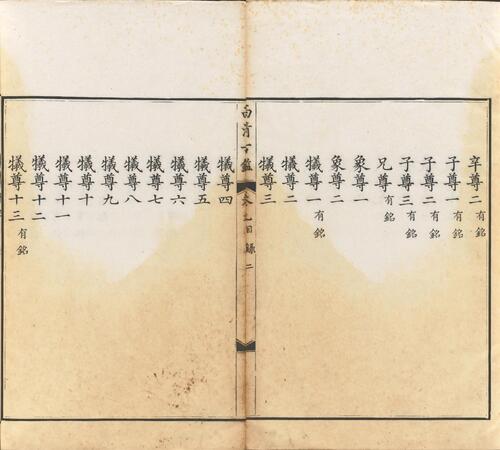 辛尊二 有銘
子尊一 有銘
子尊二 有銘
子尊三 有銘
兄尊 有銘
象尊一
象尊二
犧尊一 有銘
犧尊二
犧尊三
西清古鑑 卷九目錄 二
犧尊四
犧尊五
犧尊六
犧尊七
犧尊八
犧尊九
犧尊十
犧尊十一
犧尊十二
犧尊十三 有銘